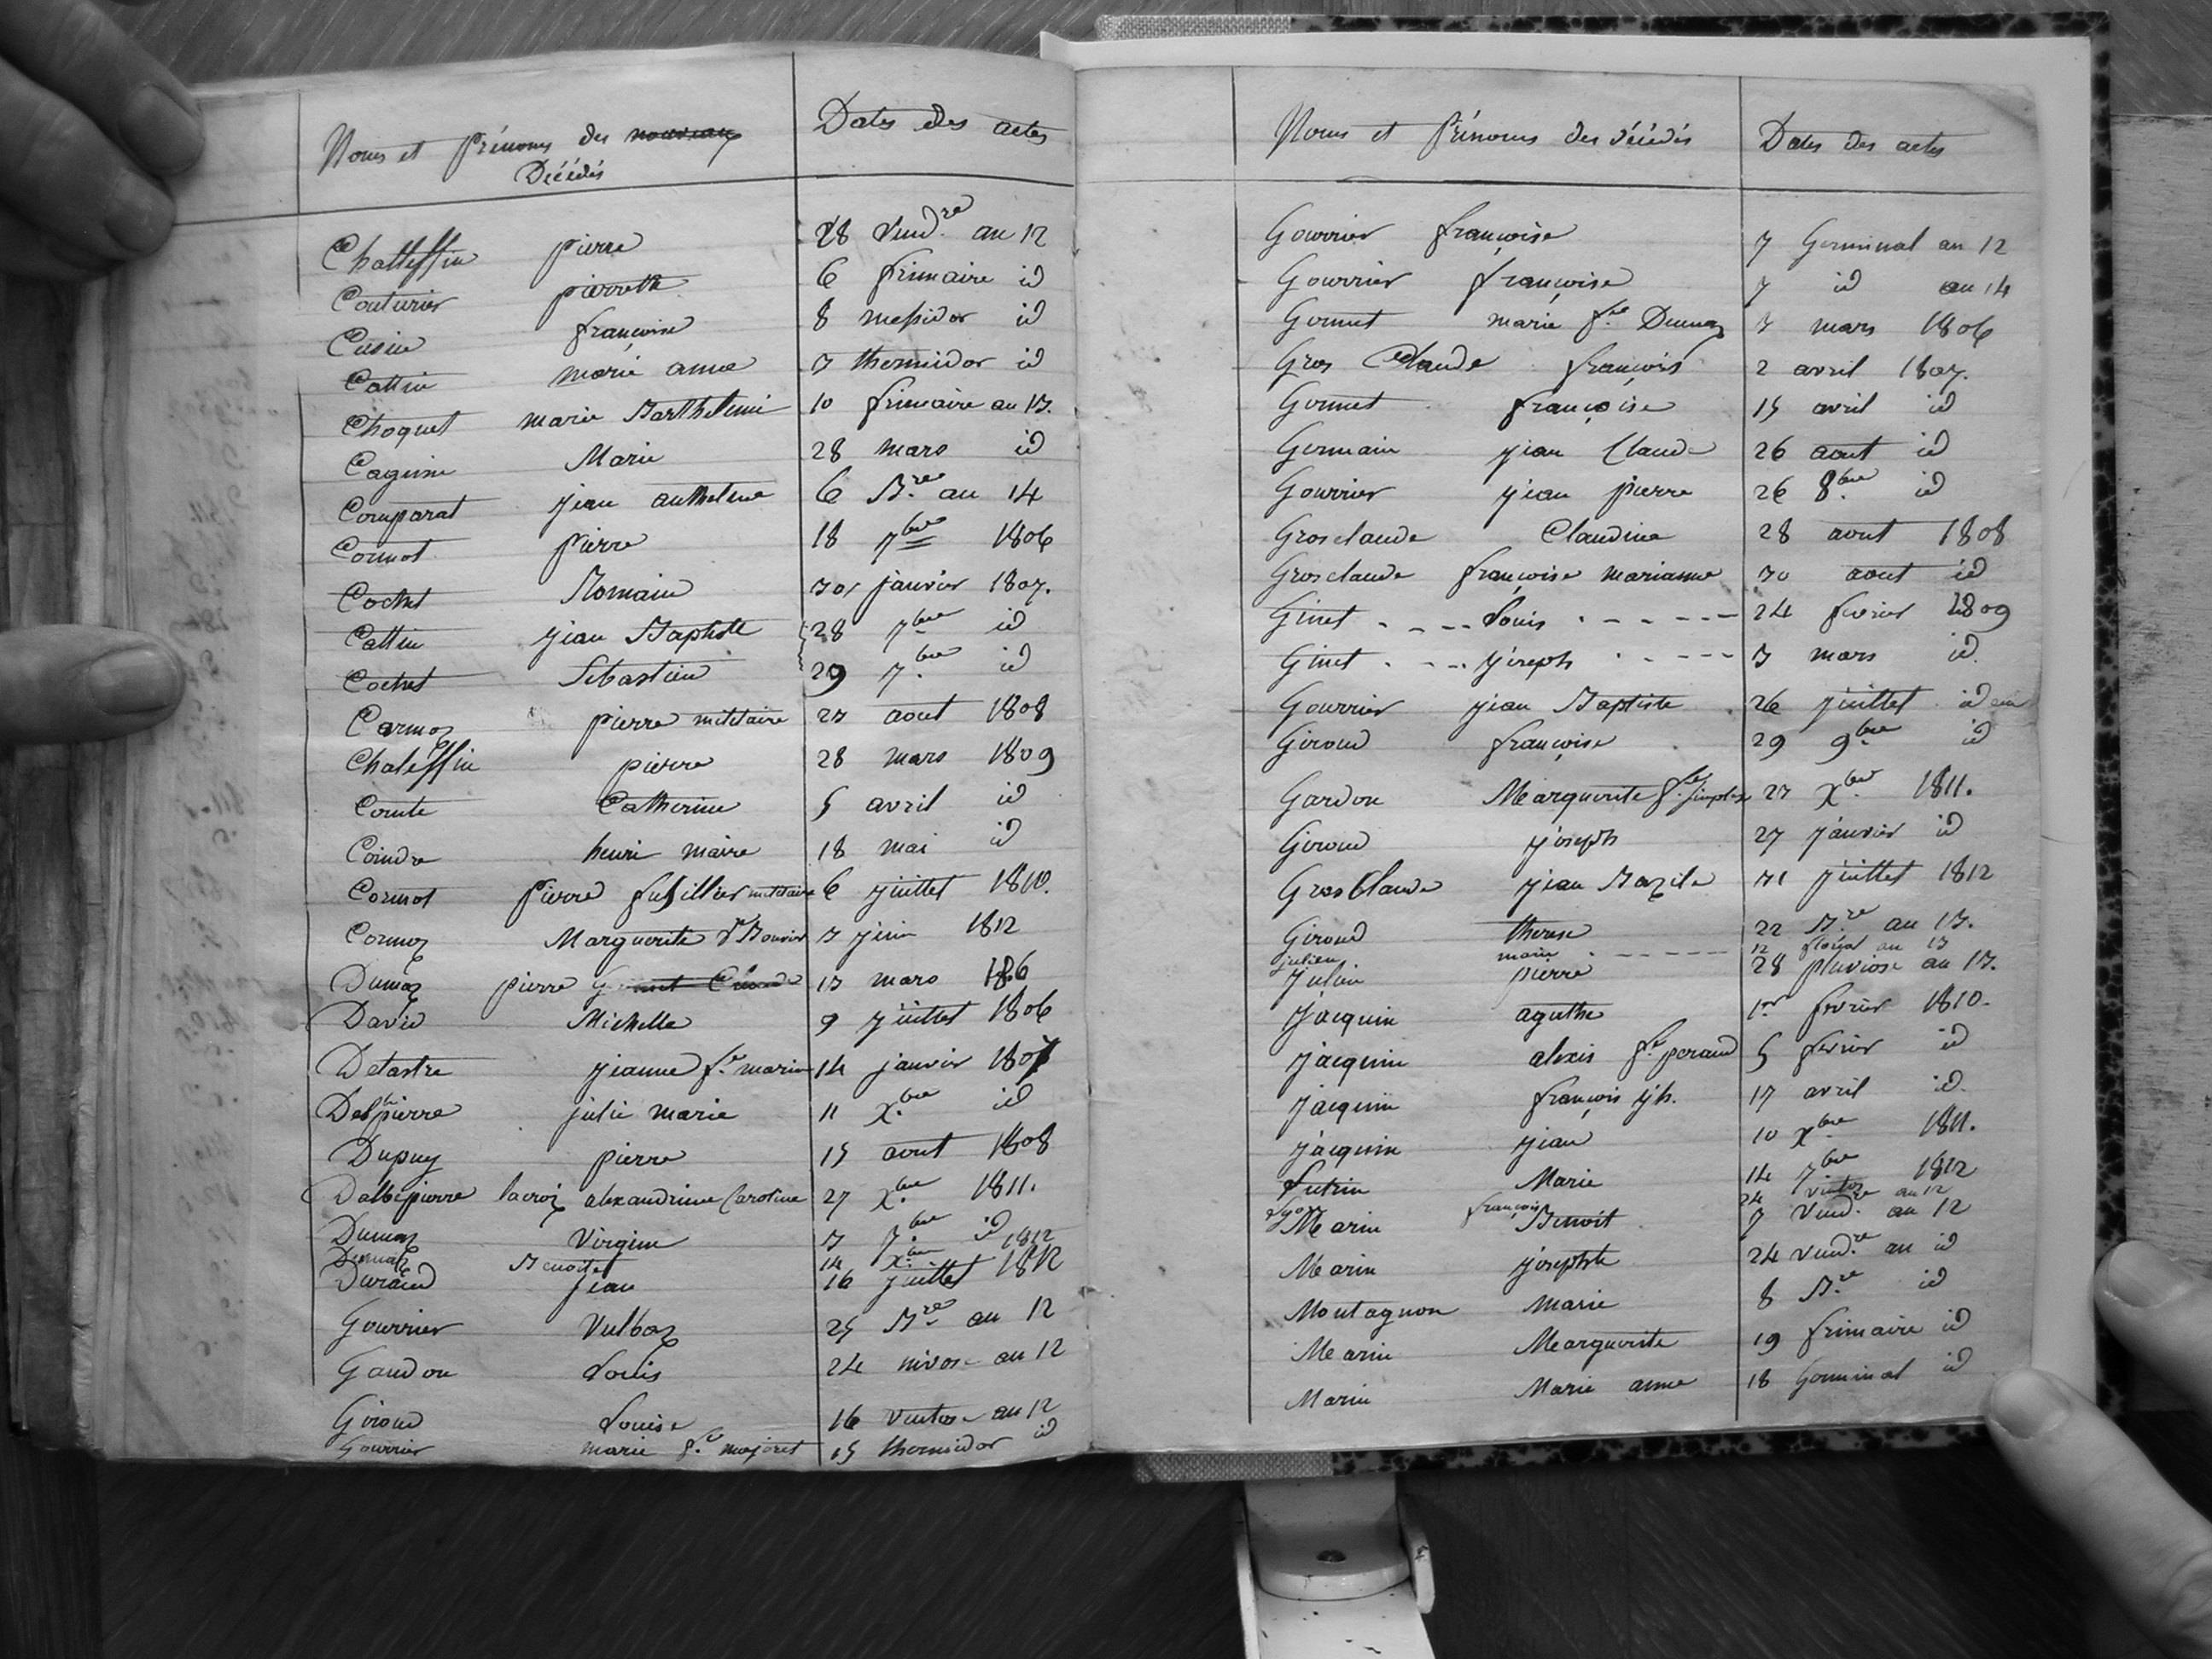 Noms et Prénoms des nouveaux
Décédés
Dates des actes
Chatteffin pierre 28 Vend.re an 12
Couturier pierrette 6 frimaire id
Cusin françoise 8 messidor id
Cattin marie anne 3 thermidor id
Choquet marie Barthelemi 10 frimaire an 13.
Cagnin Marie 28 mars id
Comparat jean anthelme 6 B.re an 14
Cormot pierre 18 7bre 1806
Cochet Romain 30 janvier 1807.
Cattin jean Baptiste 28 7bre id
Cochet Sebastien 29 7.bre id
Carmoz pierre militaire 23 aout 1808
Chaleffin pierre 28 mars 1809
Comte Catherine 5 avril id
Coindre henri maire 18 mai id
Cormot Pierre fusillier militaire 6 juillet 1810.
Cormoz Marguerite Bouvier 3 juin 1812
Dumaz pierre 13 mars 1806
David Michelle 9 juillet 1806
Delastre jeanne f.e marin 14 janvier 1807
Delbpierre julie marie 11 X.bre id
Dupuy pierre 15 aout 1808
Dalbepierre lacroix alexandrine Caroline 27 X.bre 1811.
Dumaz Virginie 3 7.bre id
Dumaz Benoite 14 X.bre 1812
Durand jean 16 juillet 1812
Gourrier Vulbaz 25 B.re an 12
Gandon Louis 24 nivose an 12
Giroud Louise 16 Ventose an 12
Gourrier marie f.e majoret 15 thermidor id
Noms et Prénoms des décédés
Dates des actes
Gourrier françoise 7 Germinal an 12
Gourrier françoise 7 id an 14
Gonnet marie f.e Dumaz 3 mars 1806
Gros Claude françois 2 avril 1807.
Gonnet françoise 15 avril id
Germain jean Claude 26 aout id
Gourrier jean pierre 26 8.bre id
Grosclaude Claudine 28 aout 1808
Grosclaude françoise marianne 30 aout id
Ginet Louis 24 fevrier 1809
Ginet joseph 3 mars id.
Gourrier jean Baptiste 26 juillet idem
Giroud françoise 29 9.bre id
Gardon Marguerite f.e simplex 23 X.bre 1811.
Giroud joseph 27 janvier id
GrosClaude jean Bazile 31 juillet 1812
Giroud therese 22 B.re an 13.
julien marie 12 floréal an 13
Julien pierre 28 pluviose an 13.
Jacquin agathe 1er fevrier 1810.
jacquin alexis f.e peraud 5 fevrier id
jacquin françois jh. 17 avril id.
jacquin jean 10 Xbre 1811.
Lutrin Marie 14 7bre 1812
Lyon françois 24 Ventose an 12
Marin Benoit 7 Vend.re an 12
Marin josephte 24 vend.re an id
Montagnon Marie 8 B.re id
Marin Marguerite 19 frimaire id
Marin Marie anne 18 Germinal id